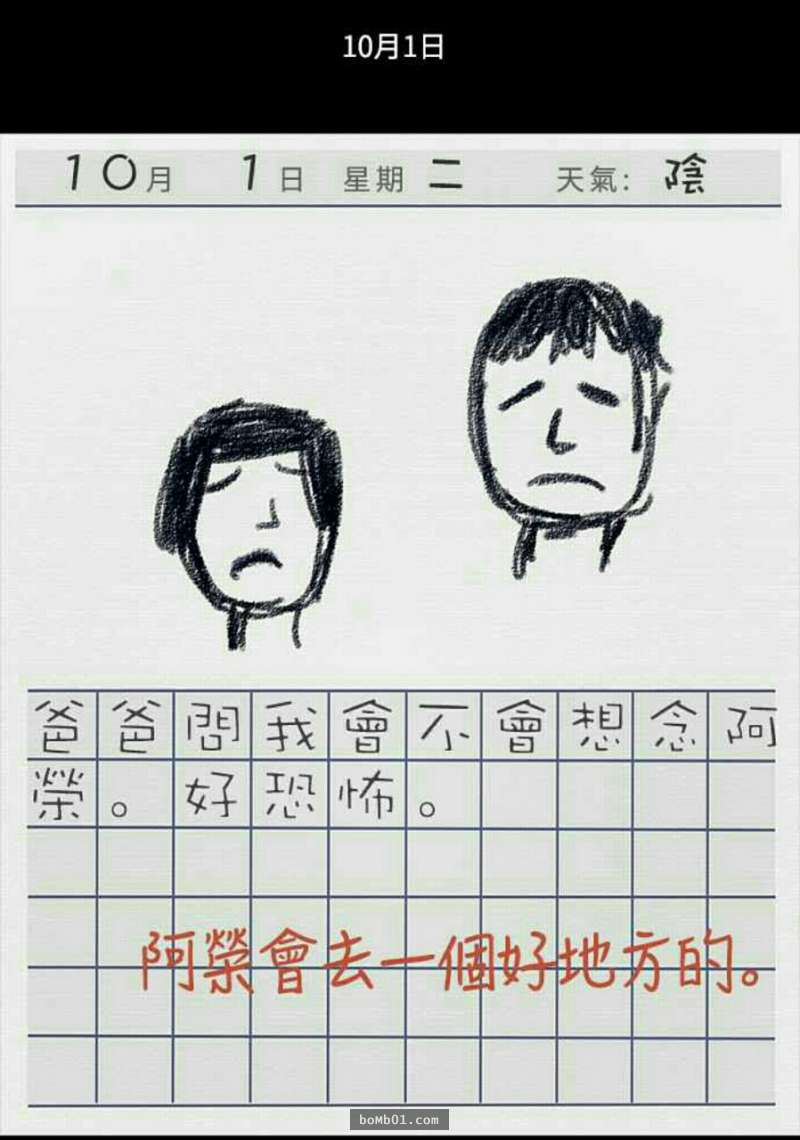 10月1日
10月 1日 星期二 天氣: 陰
爸爸問我會不會想念阿
榮。好恐怖。
阿榮會去一個好地方的。
boMb01.com